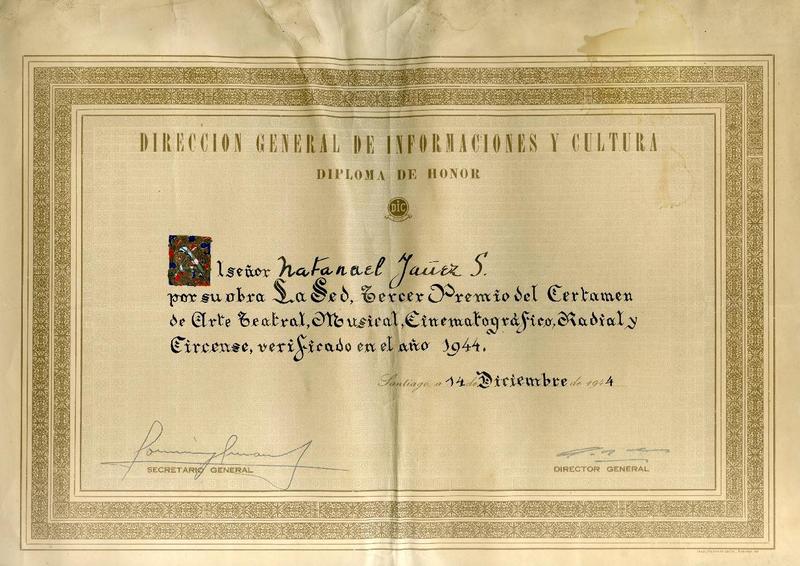 DIRECCION GENERAL DE INFORMACIONES Y CULTURA
DIPLOMA DE HONOR
DIC
Al señor Natanael Yañez S.
por su obra La Sed, Tercer Premio del Certamen
de Arte Teatral, Musical, Cinematográfico, Radial y
Circense, verificado en el año 1944.
Santiago, a 14 de Diciembre de 1944
SECRETARIO GENERAL
DIRECTOR GENERAL